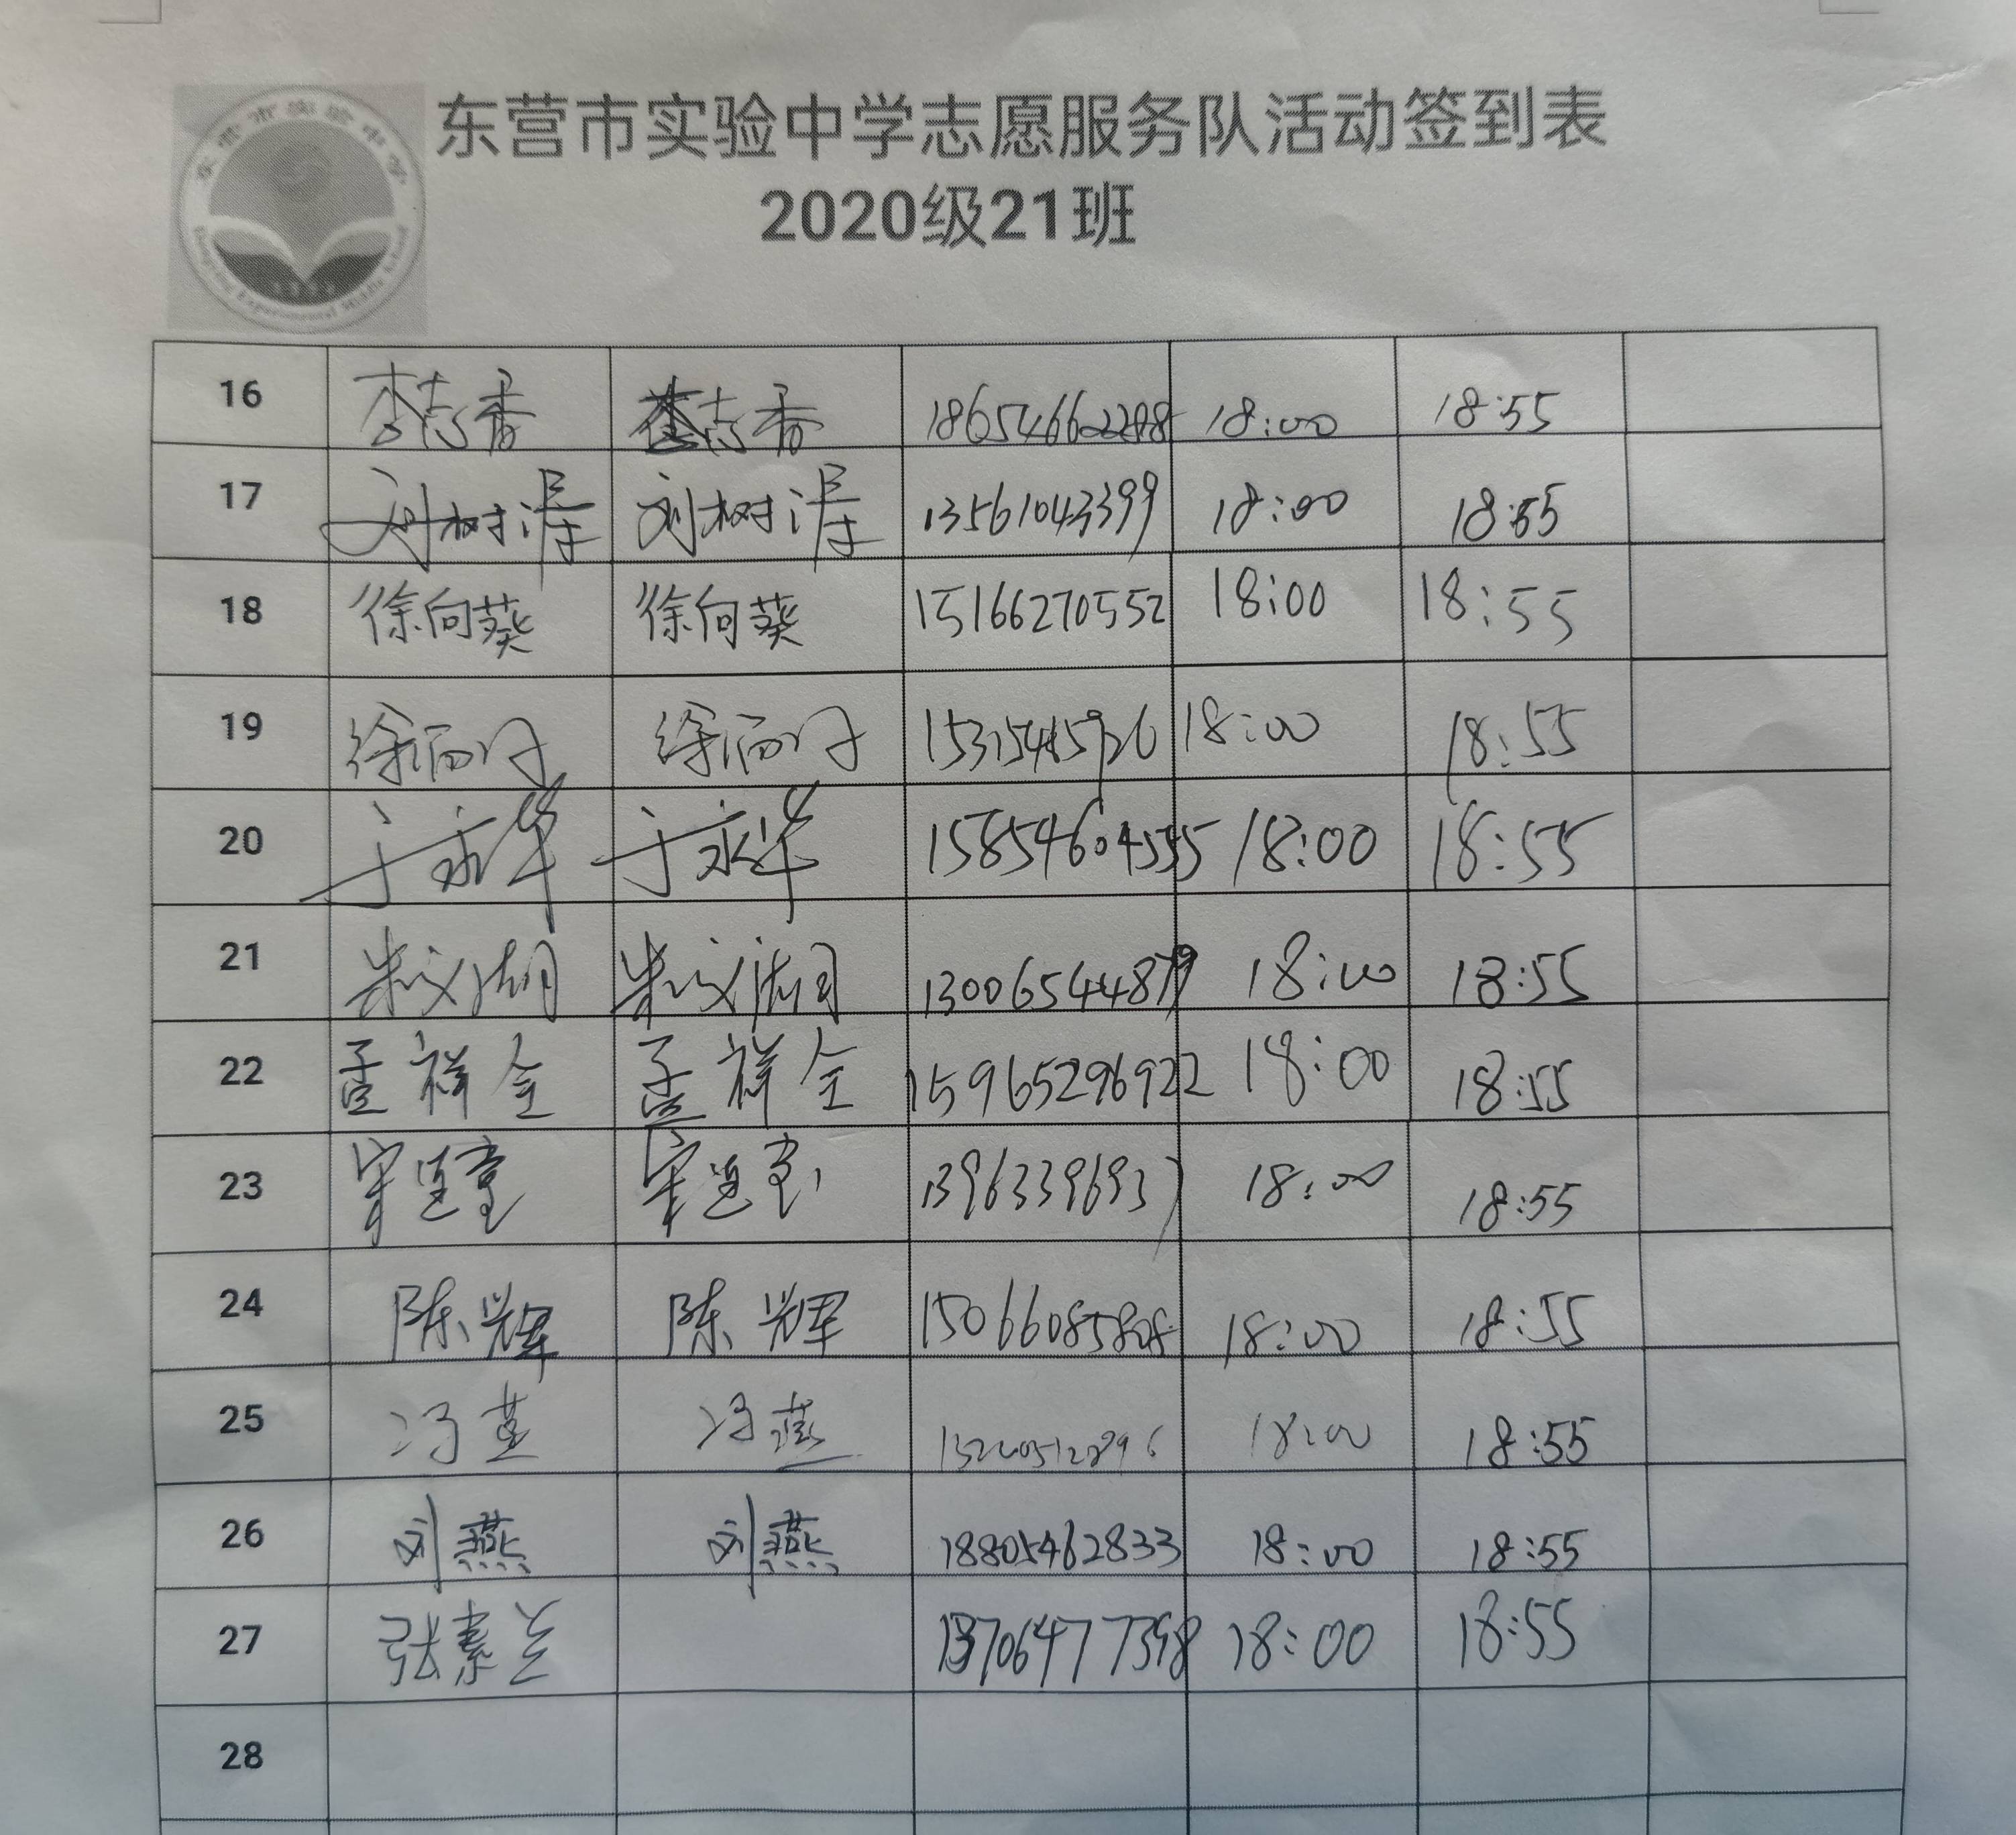 东营市实验中学
Dongying Experimental Middle School
东营市实验中学志愿服务队活动签到表
2020级21班
16 李志香 李志香 18:00 18:55
17 刘树 刘树 13561043399 18:00 18:55
18 徐向葵 徐向葵 15166270552 18:00 18:55
19 徐 徐 18:00 18:55
20 于永华 于永华 15854604555 18:00 18:55
21 朱义 朱义 13006544879 18:00 18:55
22 孟祥全 孟祥全 15965296922 18:00 18:55
23 宋 宋 13963396937 18:00 18:55
24 陈辉 陈辉 15066085808 18:00 18:55
25 冯燕 冯燕 18:00 18:55
26 刘燕 刘燕 18805462833 18:00 18:55
27 张素兰 13706477398 18:00 18:55
28